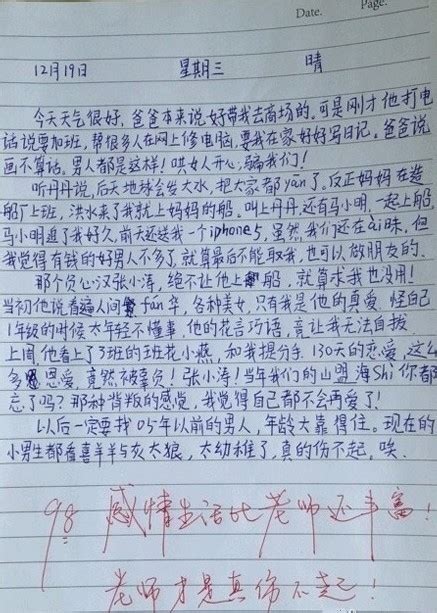 Date.
Page.
12月19日 星期三 晴
今天天气很好,爸爸本来说好带我去商场的。可是刚才他打电
话说要加班,帮很多人在网上修电脑,要我在家好好写日记。爸爸说
画不算话。男人都是这样!哄女人开心,骗我们!
听丹丹说,后天地球会发大水,把大家都yān了。反正妈妈在造
船厂上班,洪水来了我就上妈妈的船。叫上丹丹,还有马小明,一起上船,
马小明追了我好久,前天还送我一个iphone5,虽然我们还在ài昧,但
我觉得有钱的好男人不多了,就算最后不能取我,也可以做朋友的。
那个负心汉张小涛,绝不让他上船,就算求我也没用!
当初他说看遍人间fán华,各种美女,只有我是他的真爱,怪自己
1年级的时候太年轻不懂事,他的花言巧语,竟让我无法自拔
上周他看上了3班的班花小燕,和我提分手,130天的恋爱,这么
多恩爱,竟然被辜负!张小涛!当年我们的山盟海Shi你都
忘了吗?那种背叛的感觉,我觉得自己都不会再爱了!
以后一定要找05年以前的男人,年龄大靠得住。现在的
小男生都看喜羊羊与灰太狼,太幼稚了,真的伤不起,唉
98 感情生活比老师还丰富!
老师才是真伤不起!